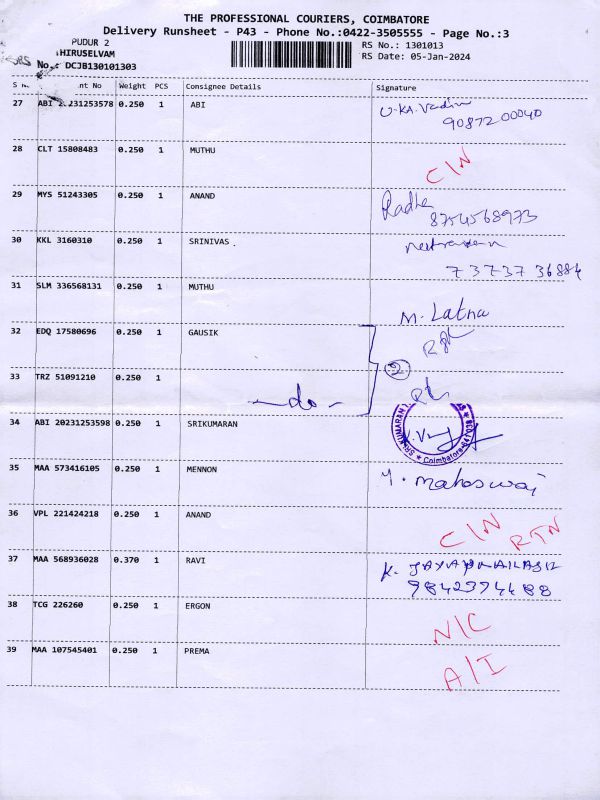 THE PROFESSIONAL COURIERS, COIMBATORE
Delivery Runsheet - P43 - Phone No.:0422-3505555 - Page No.:3
PUDUR 2
HIRUSELVAM
No.: DCJB130101303
RS No.: 1301013
RS Date: 05-Jan-2024
nt No Weight PCS Consignee Details Signature
27 ABI 20231253578 0.250 1 ABI
9087200040
28 CLT 15808483 0.250 1 MUTHU C/N
29 MYS 51243305 0.250 1 ANAND Radha
8754568973
30 KKL 3160310 0.250 1 SRINIVAS
73737 36884
31 SLM 336568131 0.250 1 MUTHU M. Latha
32 EDQ 17580696 0.250 1 GAUSIK
2
33 TRZ 51091210 0.250 1 -do-
34 ABI 20231253598 0.250 1 SRIKUMARAN
SRI KUMARAN Coimbatore
35 MAA 573416105 0.250 1 MENNON
36 VPL 221424218 0.250 1 ANAND C/N RTN
37 MAA 568936028 0.370 1 RAVI K.
9842394488
38 TCG 226260 0.250 1 ERGON N/C
39 MAA 107545401 0.250 1 PREMA A/I